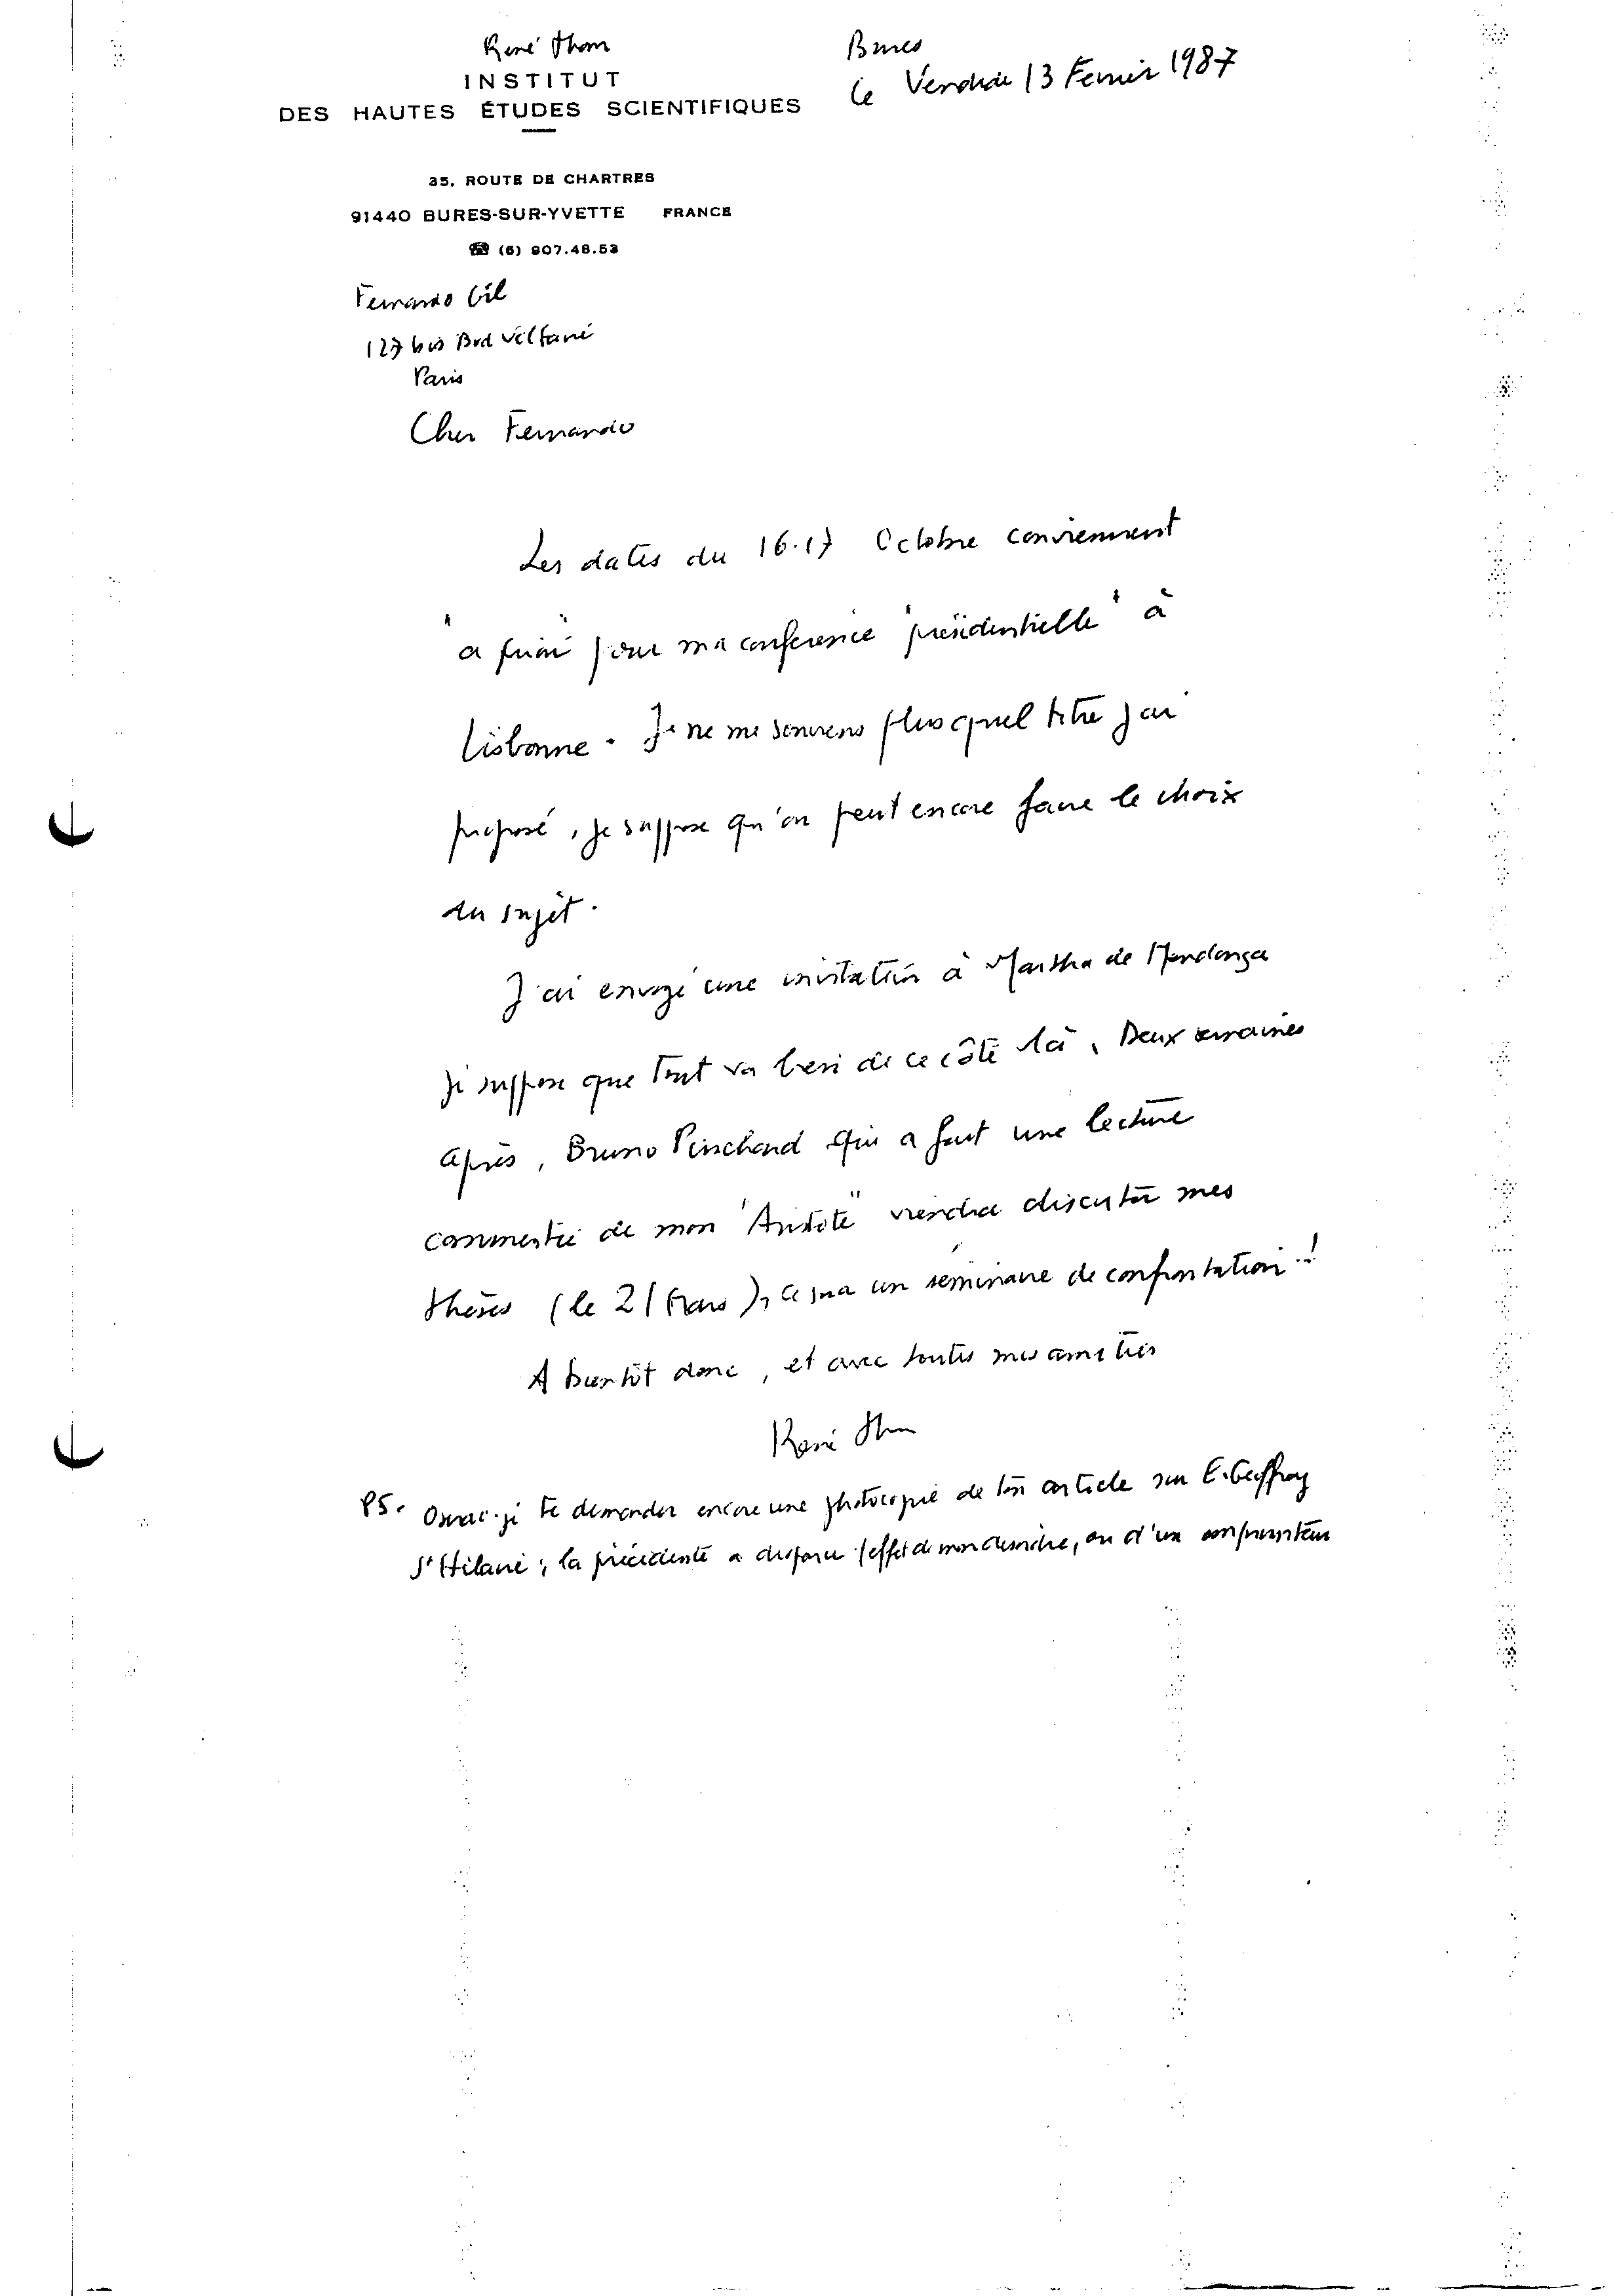 René Thom
INSTITUT
DES HAUTES ÉTUDES SCIENTIFIQUES
Bures
le Vendredi 13 Fevrier 1987
35, ROUTE DE CHARTRES
91440 BURES-SUR-YVETTE FRANCE
☎ (6) 907.48.53
Fernando Gil
127 bis Bvd
Paris
Cher Fernando
Les dates du 16.17 Octobre conviennent
"a priori" pour ma conference "présidentielle" à
Lisbonne. Je ne me souviens plus quel titre j'ai
proposé, je suppose qu'on peut encore faire le choix
du sujet.
J'ai envoyé une invitation à Martha de Mendonça
Je suppose que tout va bien de ce côté là. Deux semaines
après, Bruno Pinchard qui a fait une lecture
commentée de mon "Aristote" viendra discuter mes
thèses (le 21 Mars), ce sera un séminaire de confrontation..!
A bientôt donc, et avec toutes mes amitiés
René Thom
P.S. Oserai-je te demander encore une photocopie de ton article sur E. Geoffroy
St Hilaire; la précédente a disparu (effet de mon désordre, ou d'un emprunteur